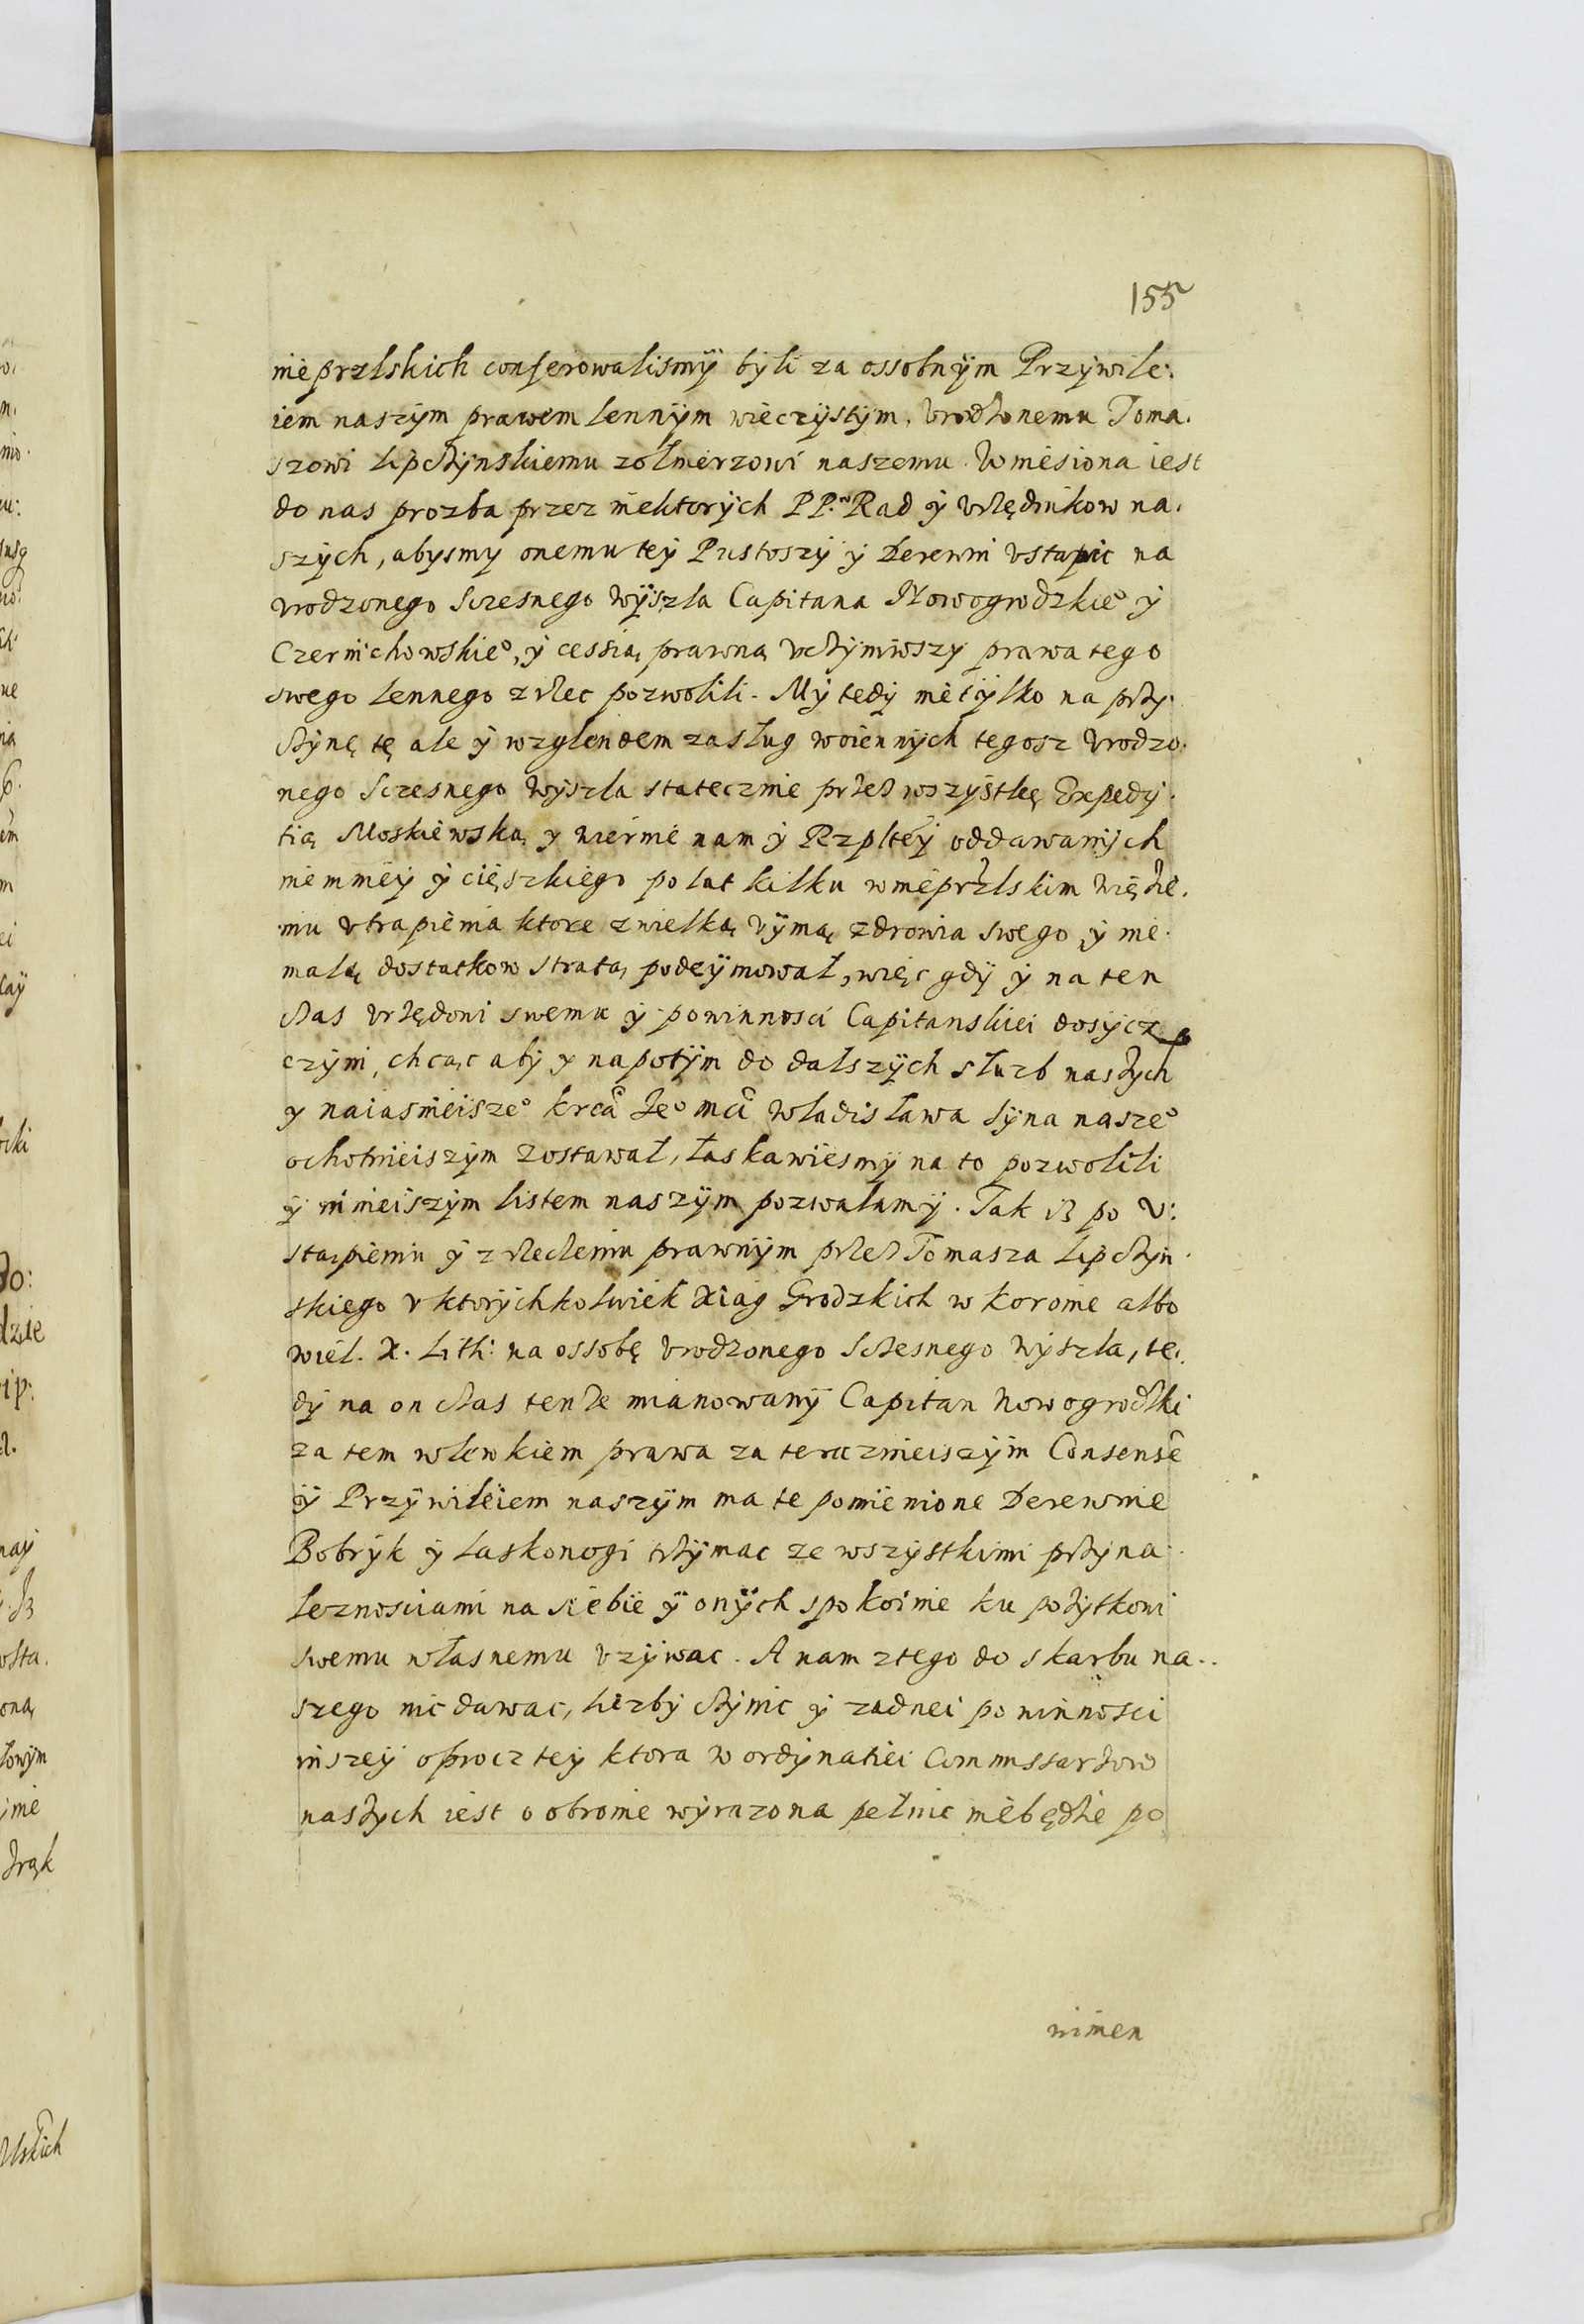 155
nieprzlskich conferowalismÿ bÿli za ossobnÿm Przÿwile:
iem naszÿm prawem lennÿm wieczÿstÿm, Vrodzonemu Toma.
szowi Lipczÿnskiemu zołnierzowi naszemu. Wniesiona iest
do nas prozba przez niektorÿch PP. Rad ÿ Vrzędnikow na.
szÿch, abysmy onemu teÿ Pustoszÿ ÿ Derewni vstąpic na
vrodzonego Sczesnego Wÿszla Capitana Nowogrodzkie° ÿ
Czernichowskie°, ÿ cessią prawną vczÿniwszy prawa tego
swego lennego zrzec pozwolili. Mÿ tedÿ nietÿlko na przÿ.
czÿnę tę ale ÿ wzglendem zasług woiennÿch tegosz Vrodzo.
nego Sczesnego Wÿszla statecznie przez wszÿstkę Expedÿ.
tią Moskiewską y wiernie nam ÿ Rzplteÿ oddawanÿch
niemnieÿ ÿ cięszkiego po lat kilku w nieprzlskim więzie.
niu vtrapienia ktore z wielką vÿmą zdrowia swego ÿ nie.
małą dostatkow stratą podeÿmował, więc gdÿ ÿ na ten
czas vrzędowi swemu ÿ powinnosci Capitanskiei dosÿcz
czÿni, chcąc abÿ y napotÿm do dalszÿch służb naszÿch
y naiasnieisze° krca Je° mci Władisława Sÿna nasze°
ochotnieiszÿm zostawał, łaskawiesmÿ na to pozwolili
ÿ ninieiszÿm listem naszÿm pozwalamÿ. Tak iż po V:
stąpieniu ÿ zrzeczeniu prawnÿm przez Tomasza Lipczÿn.
skiego v ktorÿchkolwiek Xiąg Grodzkich w koronie albo
wiel. X. Lith: na ossobę vrodzonego Sczesnego Wÿszla, te.
dÿ na on czas tenze mianowanÿ Capitan Nowogrodzki
za tem wlewkiem prawa za teraznieiszÿm Consense
ÿ Przÿwileiem naszÿm ma te pomienione Derewnie
Bobrÿk ÿ Laskonogi trzÿmac ze wszÿstkimi przÿna.
leznosciami na siebie ÿ onÿch spokoinie ku pożÿtkowi
swemu własnemu vzÿwac. A nam z tego do skarbu na..
szego nic dawac, liczbÿ czÿnic ÿ zadnei powinnosci
inszeÿ oprocz teÿ ktora w ordÿnatiei Commissarzow
naszÿch iest o obronie wÿrazona pełnic niebędzie po
winien